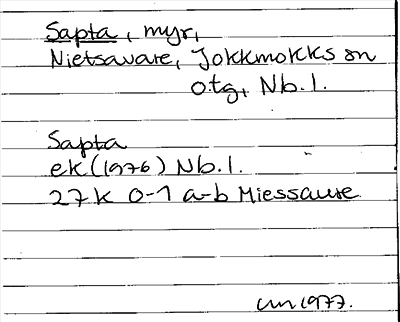 Sapta, myr,
Nietsavare, Jokkmokks sn
otg, Nb. l.
Sapta
ek (1976) Nb. l.
27 K 0-1 a-b Miessaure
um 1977.